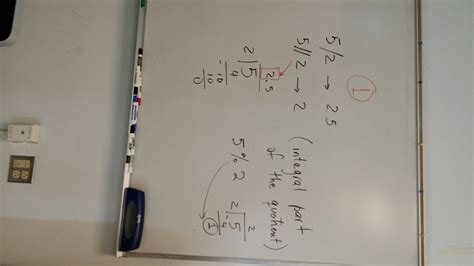 1
5/2 → 2.5
5//2 → 2 (integral part
of the quotient)
2.5
2)5
-4
10
-10
0
5 % 2
2
2)5
-4
1